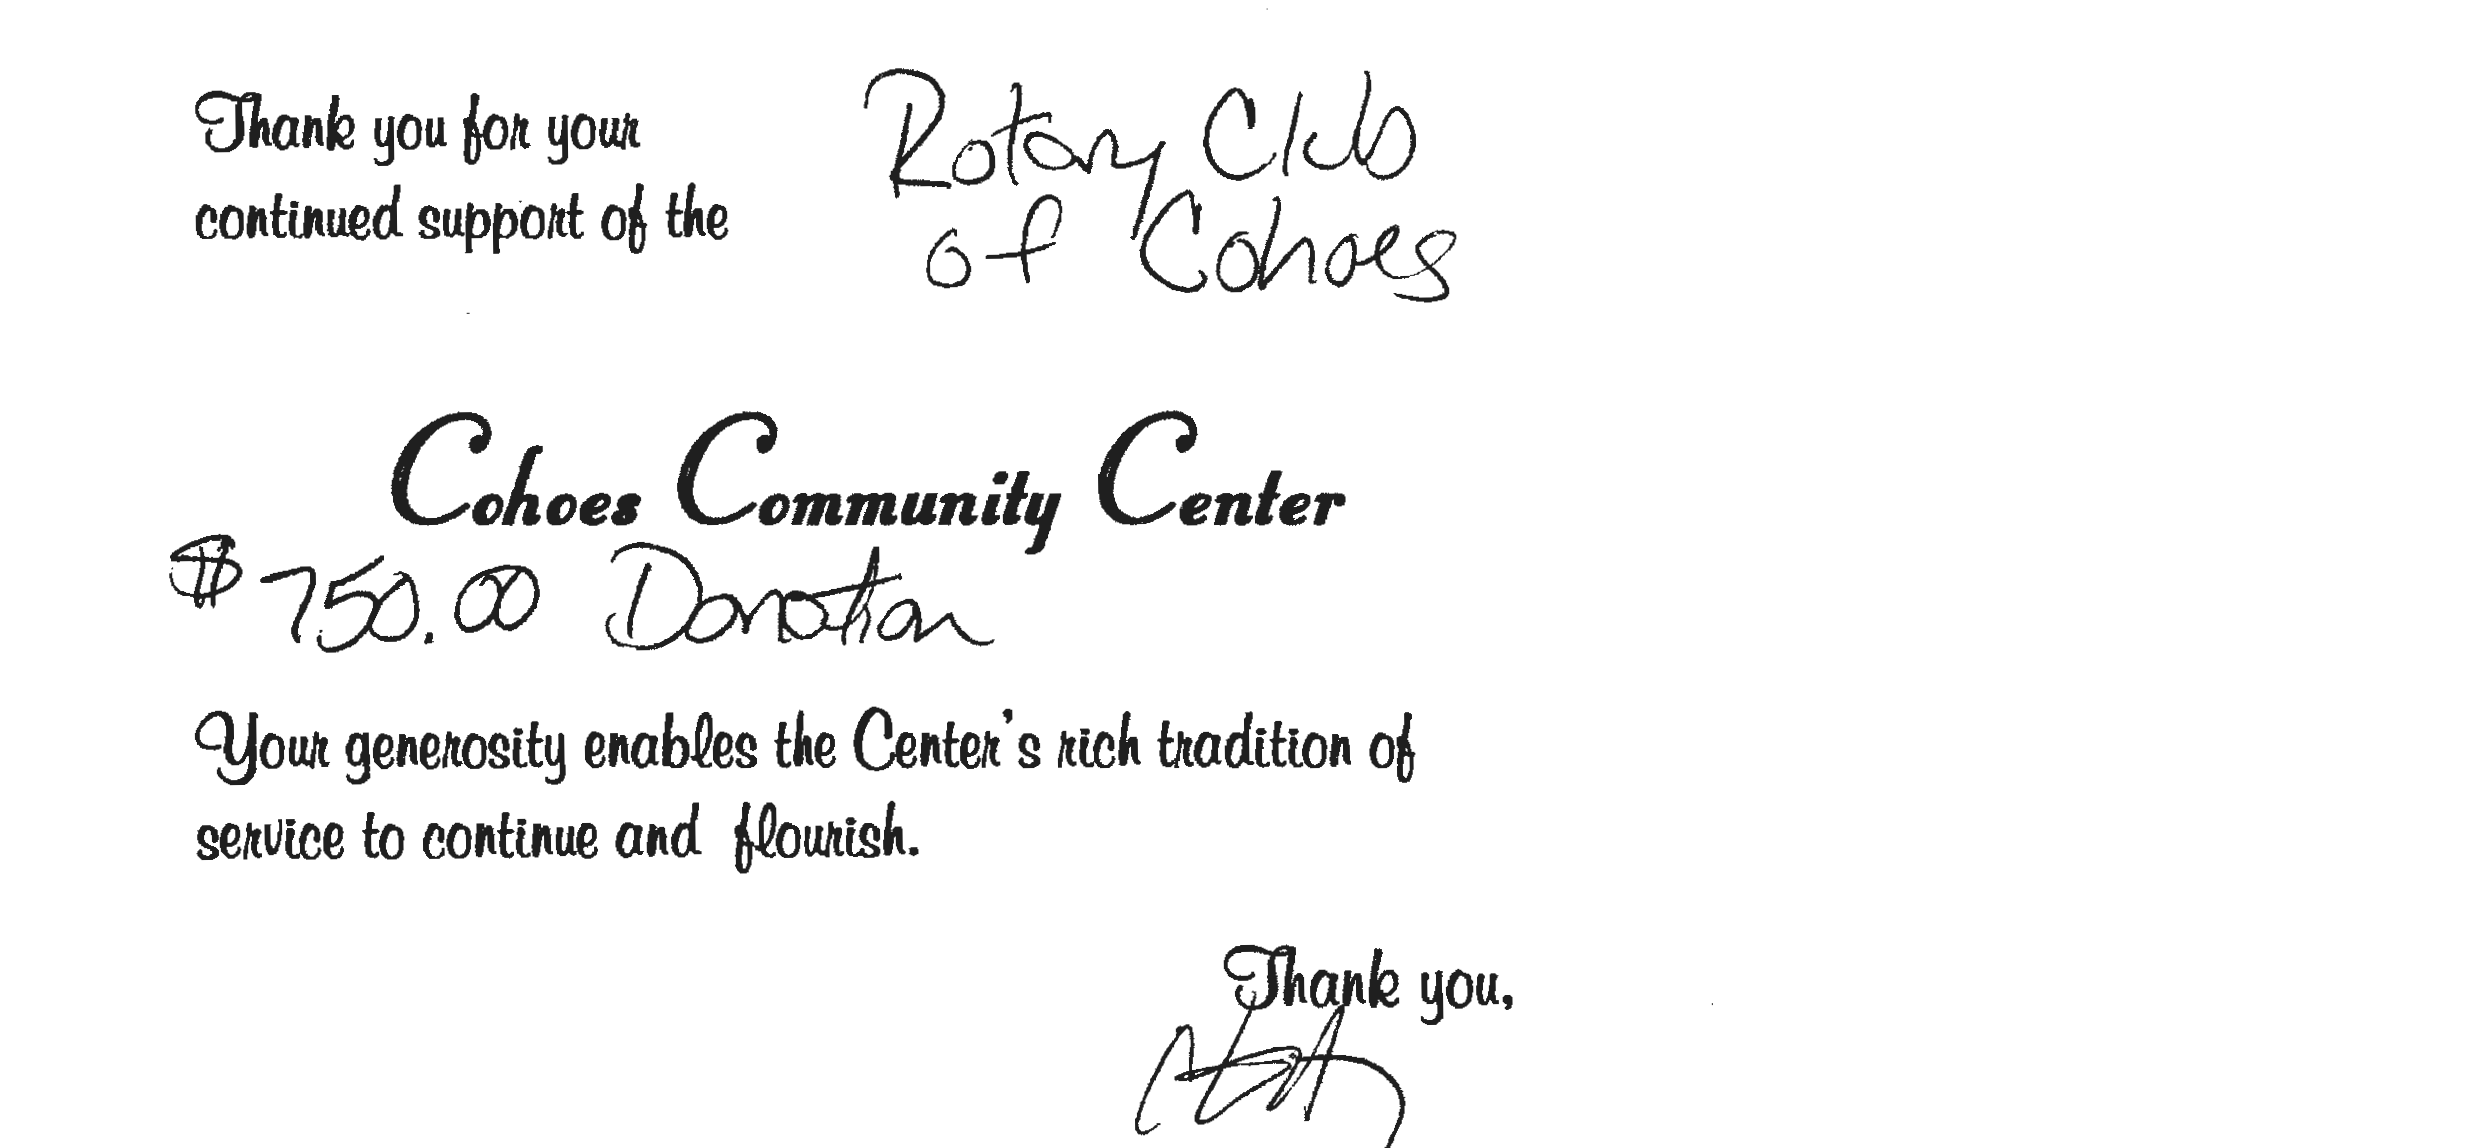 Thank you for your
Rotary Club
continued support of the
of Cohoes
Cohoes Community Center
$750.00 Donation
Your generosity enables the Center's rich tradition of
service to continue and flourish.
Thank you,